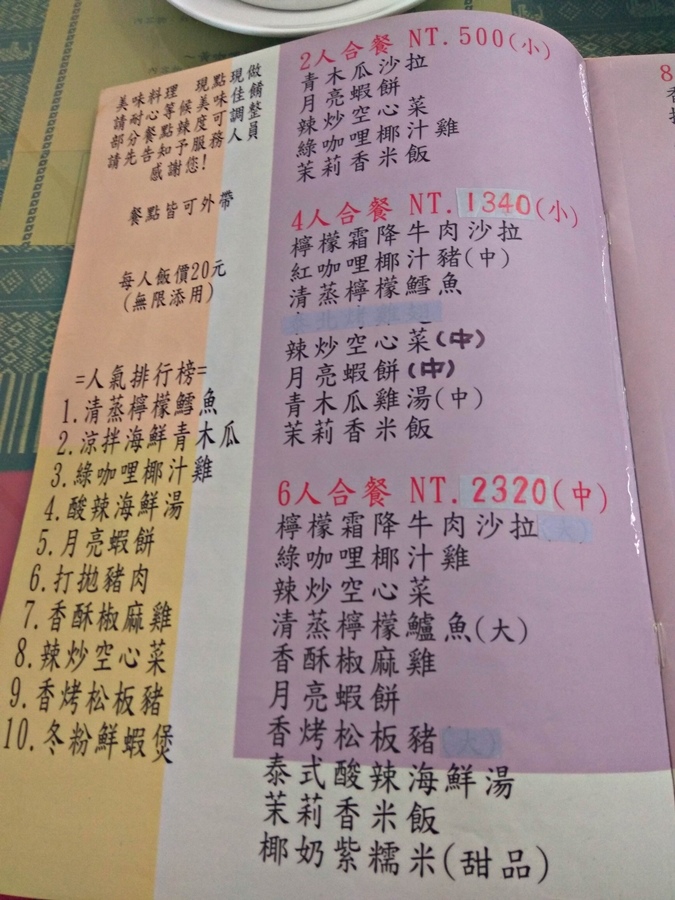 美味料理 現點現做
請耐心等候美味佳餚
部分餐點辣度可調整
請先告知予服務人員
感謝您!
餐點皆可外帶
每人飯價20元
(無限添用)
=人氣排行榜=
1.清蒸檸檬鱈魚
2.涼拌海鮮青木瓜
3.綠咖哩椰汁雞
4.酸辣海鮮湯
5.月亮蝦餅
6.打拋豬肉
7.香酥椒麻雞
8.辣炒空心菜
9.香烤松板豬
10.冬粉鮮蝦煲
2人合餐 NT.500(小)
青木瓜沙拉
月亮蝦餅
辣炒空心菜
綠咖哩椰汁雞
茉莉香米飯
4人合餐 NT.1340(小)
檸檬霜降牛肉沙拉
紅咖哩椰汁豬(中)
清蒸檸檬鱈魚
辣炒空心菜(中)
月亮蝦餅(中)
青木瓜雞湯(中)
茉莉香米飯
6人合餐 NT.2320(中)
檸檬霜降牛肉沙拉(大)
綠咖哩椰汁雞
辣炒空心菜
清蒸檸檬鱸魚(大)
香酥椒麻雞
月亮蝦餅
香烤松板豬(大)
泰式酸辣海鮮湯
茉莉香米飯
椰奶紫糯米(甜品)
8